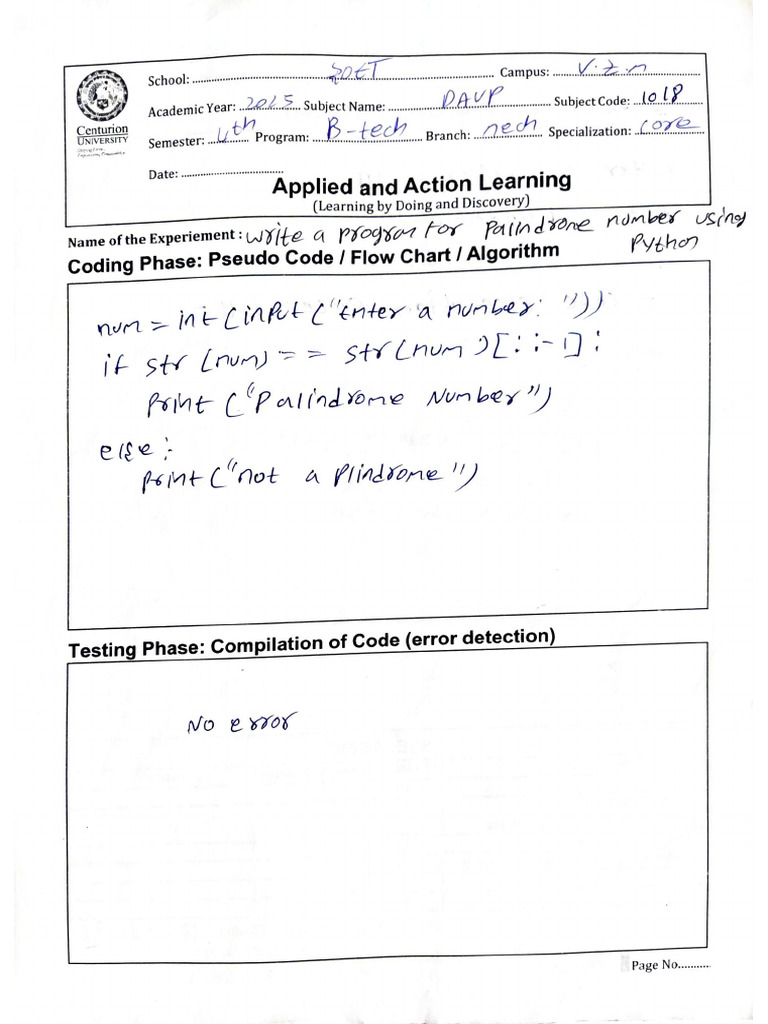 School: SOET Campus: V.Z.M
Academic Year: 2025 Subject Name: DAVP Subject Code: 1018
Centurion
UNIVERSITY
Semester: 4th Program: B-tech Branch: mech Specialization: core
Date:
Applied and Action Learning
(Learning by Doing and Discovery)
Name of the Experiement : write a program for Palindrome number using
Python
Coding Phase: Pseudo Code / Flow Chart / Algorithm
num = int (input ("Enter a number: "))
if str (num) == str (num) [: :-1] :
Print ("Palindrome Number")
else :-
print ("not a Plindrome")
Testing Phase: Compilation of Code (error detection)
No error
Page No..........